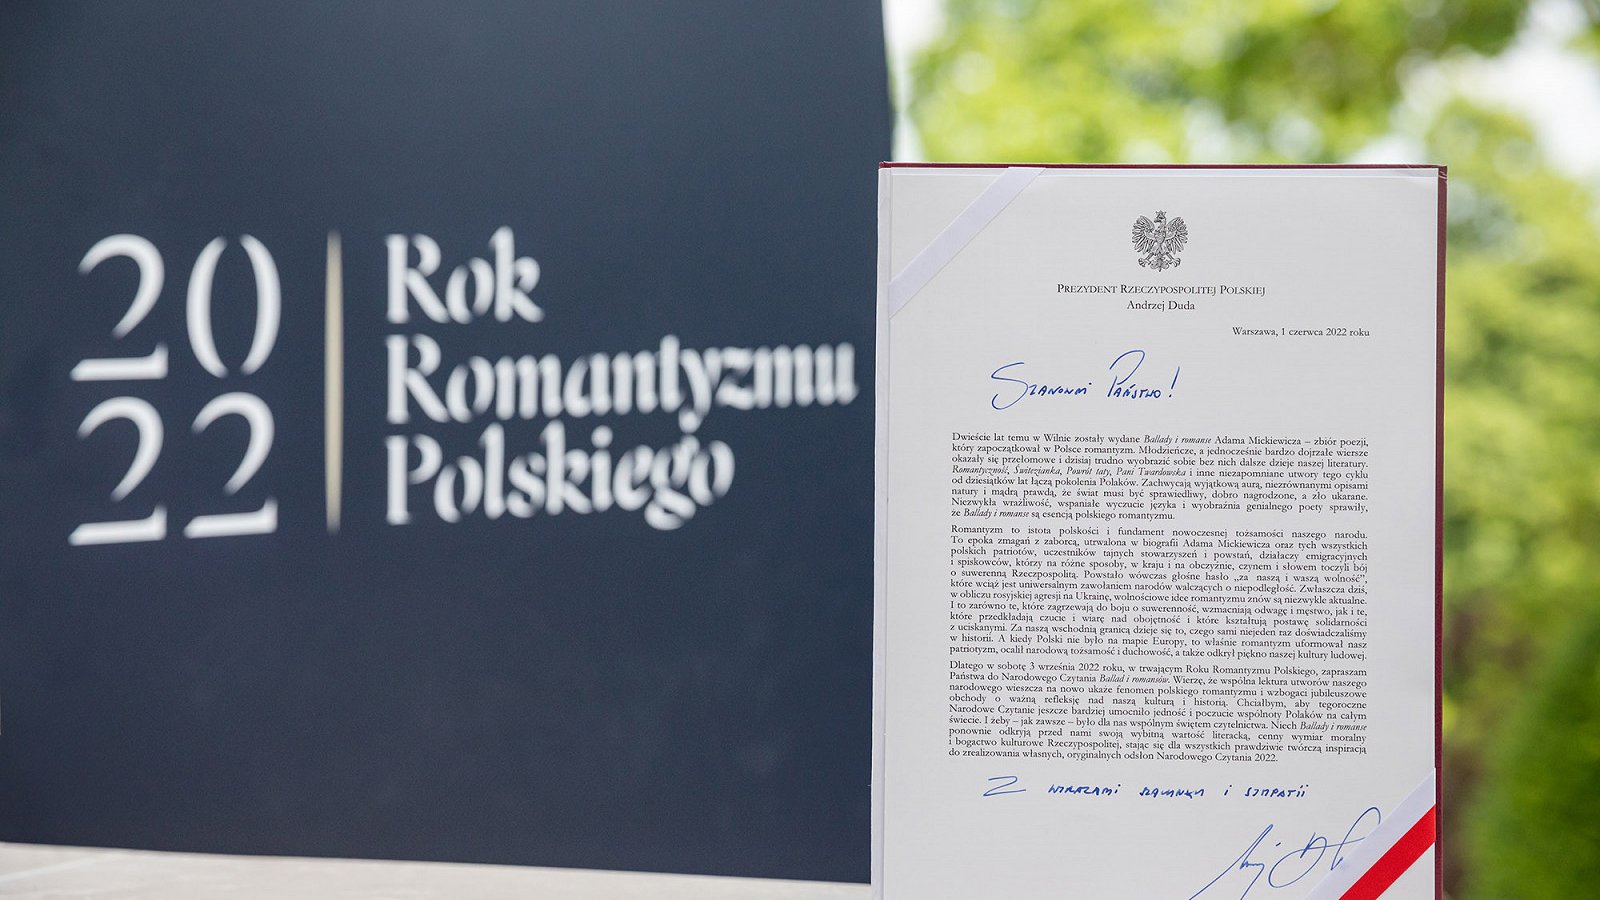 20
22
Rok
Romantyzmu
Polskiego
PREZYDENT RZECZYPOSPOLITEJ POLSKIEJ
Andrzej Duda
Warszawa, 1 czerwca 2022 roku
Szanowni Państwo!
Dwieście lat temu w Wilnie zostały wydane Ballady i romanse Adama Mickiewicza – zbiór poezji,
który zapoczątkował w Polsce romantyzm. Młodzieńcze, a jednocześnie bardzo dojrzałe wiersze
okazały się przełomowe i dzisiaj trudno wyobrazić sobie bez nich dalsze dzieje naszej literatury.
Romantyczność, Świtezianka, Powrót taty, Pani Twardowska i inne niezapomniane utwory tego cyklu
od dziesiątków lat łączą pokolenia Polaków. Zachwycają wyjątkową aurą, niezrównanymi opisami
natury i mądrą prawdą, że świat musi być sprawiedliwy, dobro nagrodzone, a zło ukarane.
Niezwykła wrażliwość, wspaniałe wyczucie języka i wyobraźnia genialnego poety sprawiły,
że Ballady i romanse są esencją polskiego romantyzmu.
Romantyzm to istota polskości i fundament nowoczesnej tożsamości naszego narodu.
To epoka zmagań z zaborcą, utrwalona w biografii Adama Mickiewicza oraz tych wszystkich
polskich patriotów, uczestników tajnych stowarzyszeń i powstań, działaczy emigracyjnych
i spiskowców, którzy na różne sposoby, w kraju i na obczyźnie, czynem i słowem toczyli bój
o suwerenną Rzeczpospolitą. Powstało wówczas głośne hasło „za naszą i waszą wolność”,
które wciąż jest uniwersalnym zawołaniem narodów walczących o niepodległość. Zwłaszcza dziś,
w obliczu rosyjskiej agresji na Ukrainę, wolnościowe idee romantyzmu znów są niezwykle aktualne.
I to zarówno te, które zagrzewają do boju o suwerenność, wzmacniają odwagę i męstwo, jak i te,
które przedkładają czucie i wiarę nad obojętność i które kształtują postawę solidarności
z uciskanymi. Za naszą wschodnią granicą dzieje się to, czego sami niejeden raz doświadczaliśmy
w historii. A kiedy Polski nie było na mapie Europy, to właśnie romantyzm uformował nasz
patriotyzm, ocalił narodową tożsamość i duchowość, a także odkrył piękno naszej kultury ludowej.
Dlatego w sobotę 3 września 2022 roku, w trwającym Roku Romantyzmu Polskiego, zapraszam
Państwa do Narodowego Czytania Ballad i romansów. Wierzę, że wspólna lektura utworów naszego
narodowego wieszcza na nowo ukaże fenomen polskiego romantyzmu i wzbogaci jubileuszowe
obchody o ważną refleksję nad naszą kulturą i historią. Chciałbym, aby tegoroczne
Narodowe Czytanie jeszcze bardziej umocniło jedność i poczucie wspólnoty Polaków na całym
świecie. I żeby – jak zawsze – było dla nas wspólnym świętem czytelnictwa. Niech Ballady i romanse
ponownie odkryją przed nami swoją wybitną wartość literacką, cenny wymiar moralny
i bogactwo kulturowe Rzeczypospolitej, stając się dla wszystkich prawdziwie twórczą inspiracją
do zrealizowania własnych, oryginalnych odsłon Narodowego Czytania 2022.
Z wyrazami szacunku i sympatii